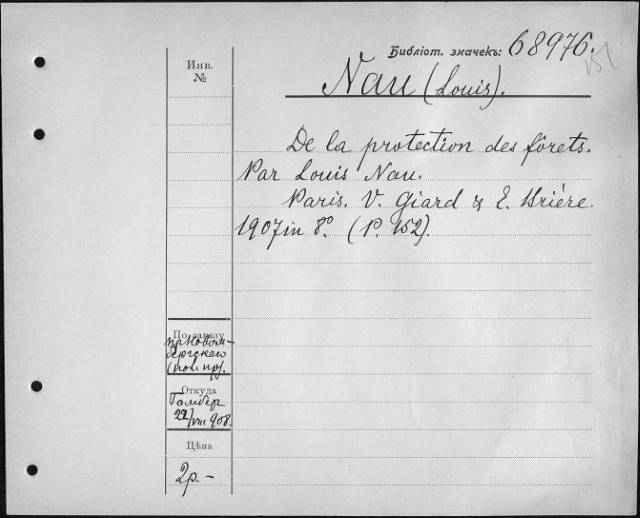 Библіот. значекъ: 68976.
Инв.
№
Nau (Louis).
De la protection des fôrets.
Par Louis Nau.
Paris. V. Giard & E. Brière.
1907 in 8.° (P. 152).
По заказу
пр. Новом-
бергскаго
Откуда
22/VIII 908.
Цѣна
2р.-